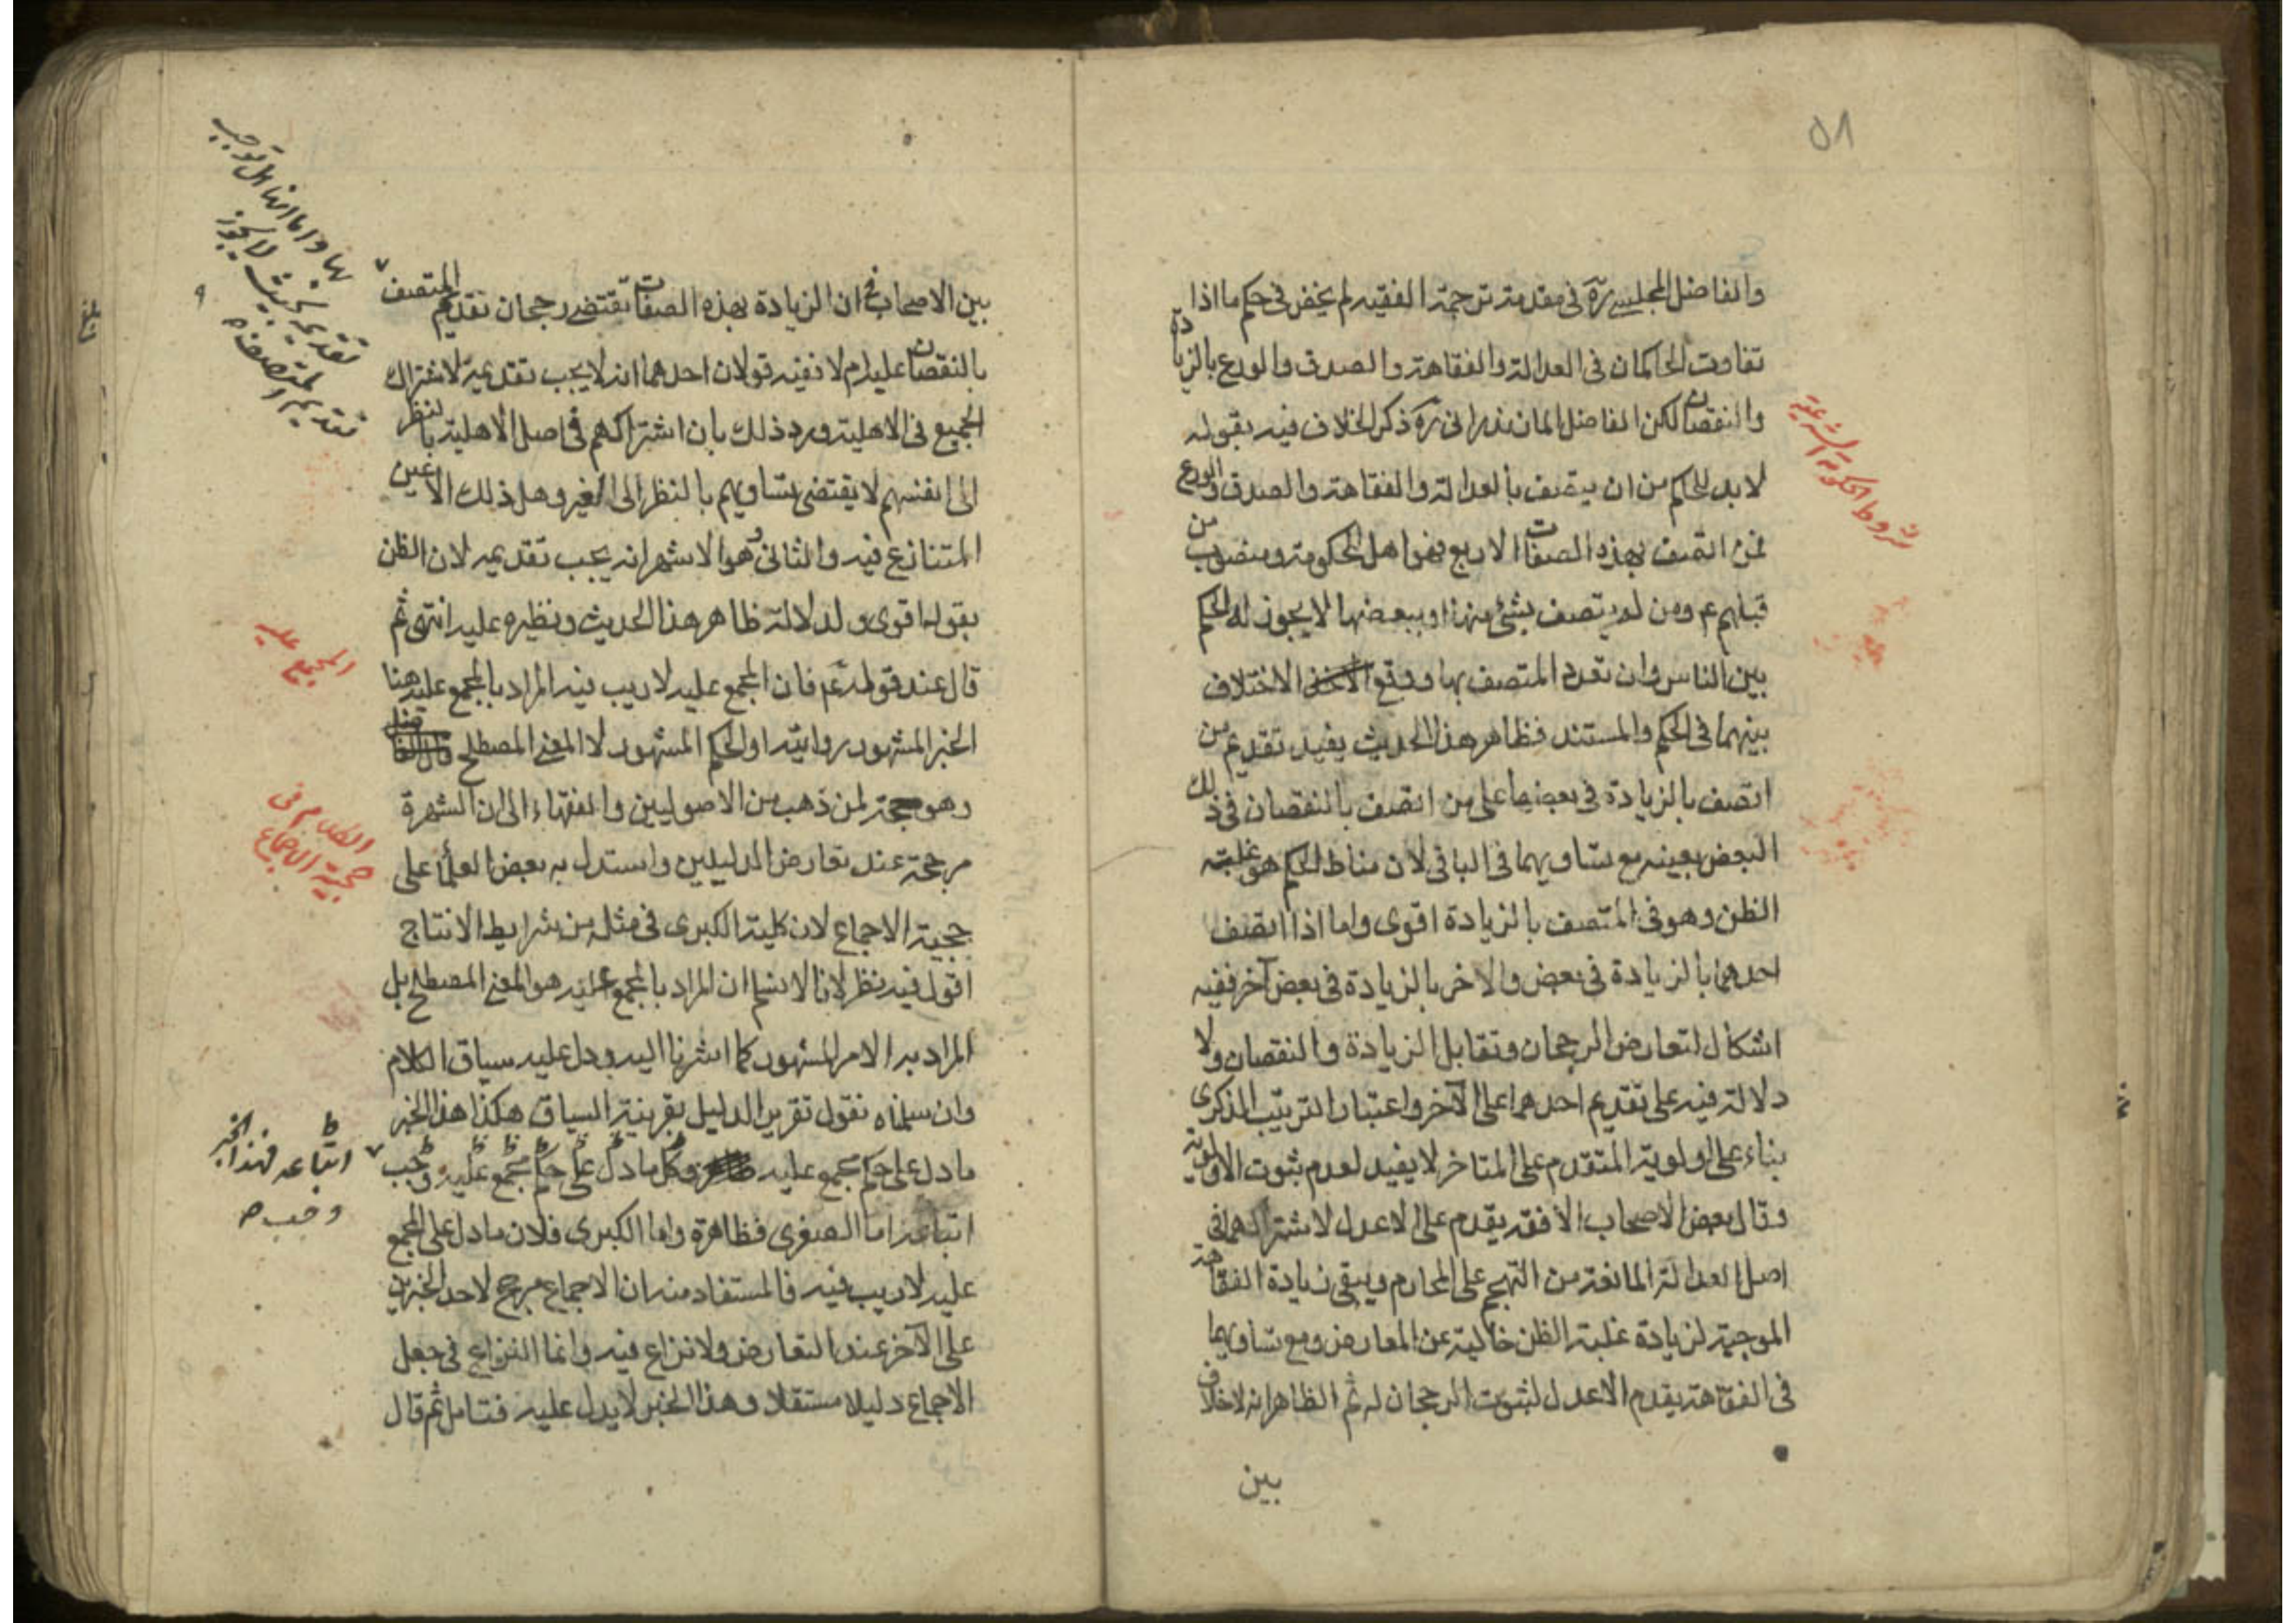 ٥٨
والفاضل المجلسي ره في مقدمة ترجمة الفقيه لم يخض في حكم ما اذا
تفاوت الحاكمان في العدالة والفقاهة والصدق والورع بالزيادة
والنقصان لكن الفاضل المازندراني ره ذكر الخلاف فيه بقوله
لا بد للحاكم من ان يتصف بالعدالة والفقاهة والصدق والورع
فمن اتصف بهذه الصفات الاربع فهو اهل للحكومة ومنصوب من
قبلهم عم ومن لم يتصف بشئ منها او ببعضها لا يجوز له الحكم
بين الناس وان تعدد المتصف بها ووقع الاختلاف
بينهما في الحكم والمستند فظاهر هذا الحديث يفيد تقديم من
اتصف بالزيادة في بعضها على من اتصف بالنقصان في ذلك
البعض بعينه مع تساويهما في الباقي لان مناط الحكم هو غلبة
الظن وهو في المتصف بالزيادة اقوى واما اذا اتصف
احدهما بالزيادة في بعض والاخر بالزيادة في بعض آخر ففيه
اشكال لتعارض الرجحان وتقابل الزيادة والنقصان ولا
دلالة فيه على تقديم احدهما على الآخر واعتبار الترتيب الذكرى
بناء على اولوية المتقدم على المتاخر لا يفيد لعدم ثبوت الاولوية
وقال بعض الاصحاب الأفقه يقدم على الاعدل لاشتراكهما في
اصل العدالة المانعة من التهجم على المحارم ويبقى زيادة الفقاهة
الموجبة لزيادة غلبة الظن خالية عن المعارض ومع تساويهما
في الفقاهة يقدم الاعدل لثبوت الرجحان له ثم الظاهر انه لا خلاف
بين
شروط الحكومة الشرعية
بين الاصحاب في ان الزيادة بهذه الصفات تقتضي رجحان تقديم المتصف
بالنقصان عليه ام لا ففيه قولان احدهما انه لا يجب تقديمه لاشتراك
الجميع في الاهلية ورد ذلك بأن اشتراكهم في اصل الأهلية بالنظر
الى انفسهم لا يقتضي تساويهم بالنظر الى الغير وهل ذلك الا عين
المتنازع فيه والثاني وهو الاشهر انه يجب تقديمه لان الظن
بقوله اقوى ولدلالة ظاهر هذا الحديث ونظيره عليه انتهى ثم
قال عند قوله عم فان المجمع عليه لا ريب فيه المراد بالمجمع عليه هنا
الخبر المشهور روايته او الحكم المشهور لا المعنى المصطلح
وهو حجة لمن ذهب من الاصوليين والفقهاء الى ان الشهرة
مرجحة عند تعارض الدليلين واستدل به بعض العلماء على
حجية الاجماع لان كلية الكبرى في مثله من شرايط الانتاج
اقول فيه نظر لانا لا نسلم ان المراد بالمجمع عليه هو المعنى المصطلح بل
المراد به الامر المشهور كما اشرنا اليه ودل عليه سياق الكلام
وان سلمناه نقول تقرير الدليل بقرينة السياق هكذا هذا الخبر
ما دل على حكم مجمع عليه وكل ما دل على حكم مجمع عليه وجب
اتباعه اما الصغرى فظاهرة واما الكبرى فلان ما دل على المجمع
عليه لا ريب فيه فالمستفاد منه ان الاجماع مرجح لاحد الخبرين
على الآخر عند التعارض ولا نزاع فيه وانما النزاع في جعل
الاجماع دليلا مستقلا وهذا الخبر لا يدل عليه فتامل ثم قال
بها واما انها هل توجب
تقديمه بحيث لا يجوز
تقديم المتصف
المجمع عليه
الكلام في
حجية الاجماع
اتباعه فهذا الخبر
وجب
بلغ